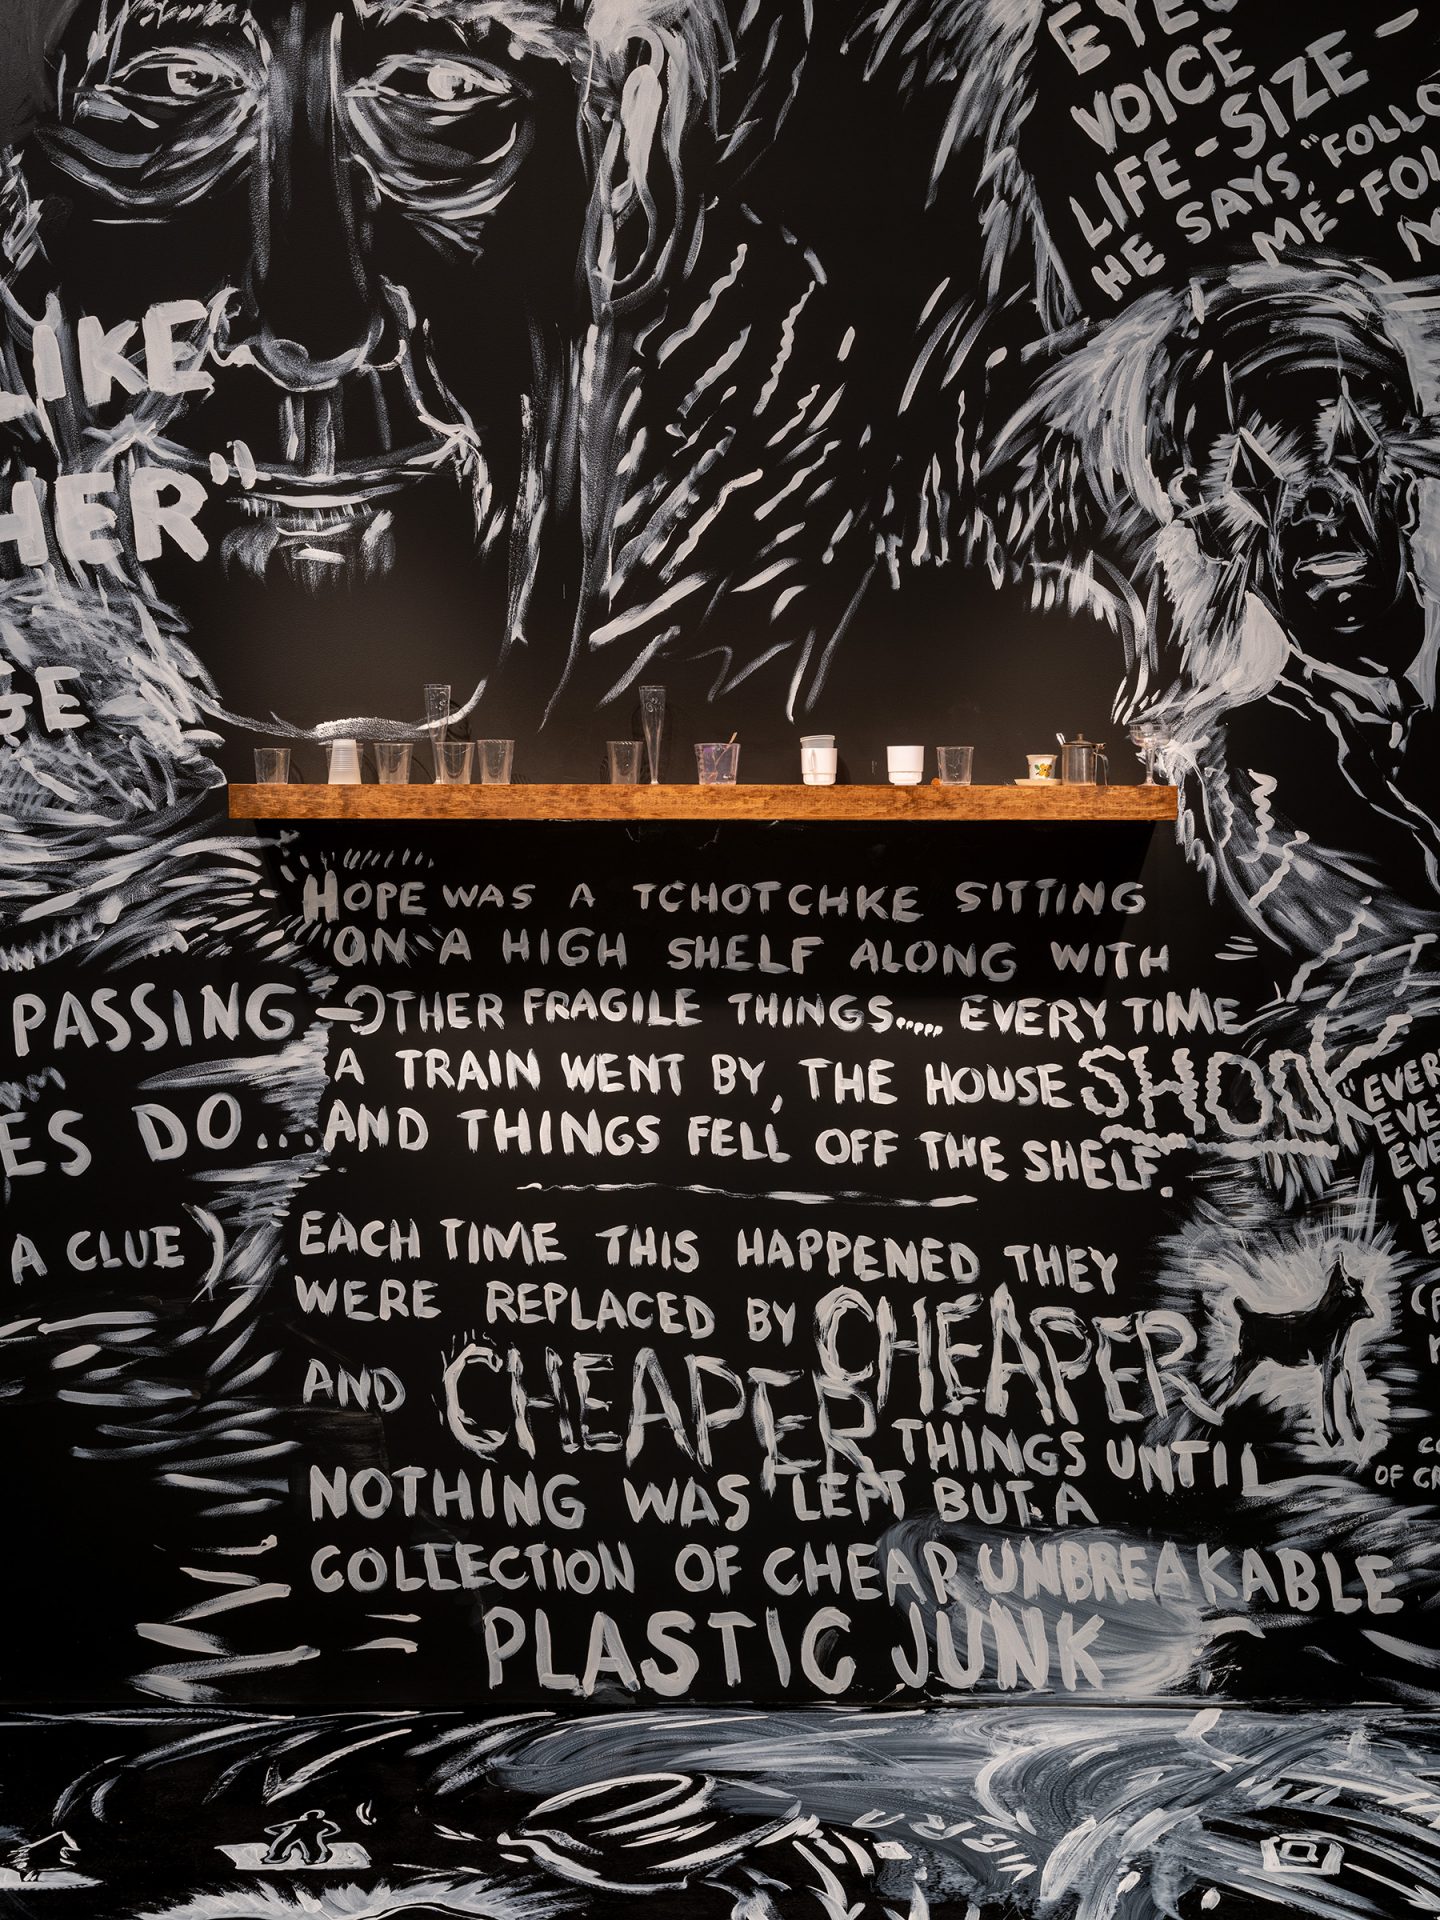 VOICE
LIFE-SIZE-
HE SAYS, "FOLLO
ME-FOL
LIKE
HER"
GE
HOPE WAS A TCHOTCHKE SITTING
ON A HIGH SHELF ALONG WITH
OTHER FRAGILE THINGS..... EVERY TIME
A TRAIN WENT BY, THE HOUSE SHOOK
AND THINGS FELL OFF THE SHELF.
EACH TIME THIS HAPPENED THEY
WERE REPLACED BY CHEAPER
AND CHEAPER THINGS UNTIL
NOTHING WAS LEFT BUT A
COLLECTION OF CHEAP UNBREAKABLE
PLASTIC JUNK
PASSING
ES DO...
A CLUE)
"EVER
EVE
EVE
IS
OF GR